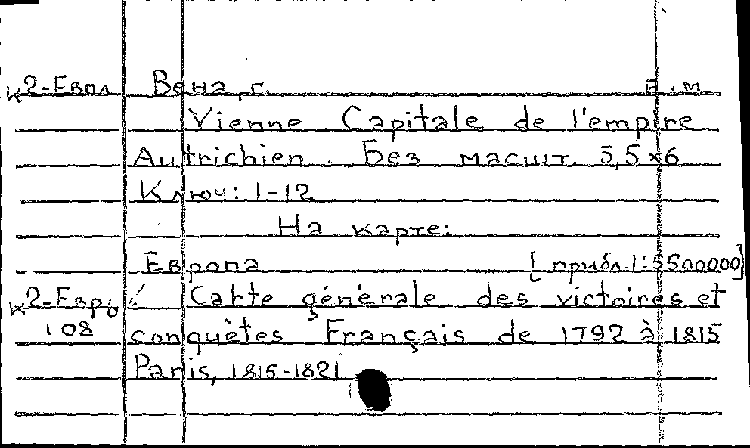 к2-Евпл Вена, г. Б.м.
Vienne Capitale de l'empire
Autrichien. Без масшт. 5,5×6
Ключ: 1-12
На карте:
Европа [прибл. 1:5500000]
к2-Евро Carte générale des victoires et
108 conquètes Français de 1792 à 1815
Paris, 1815-1821